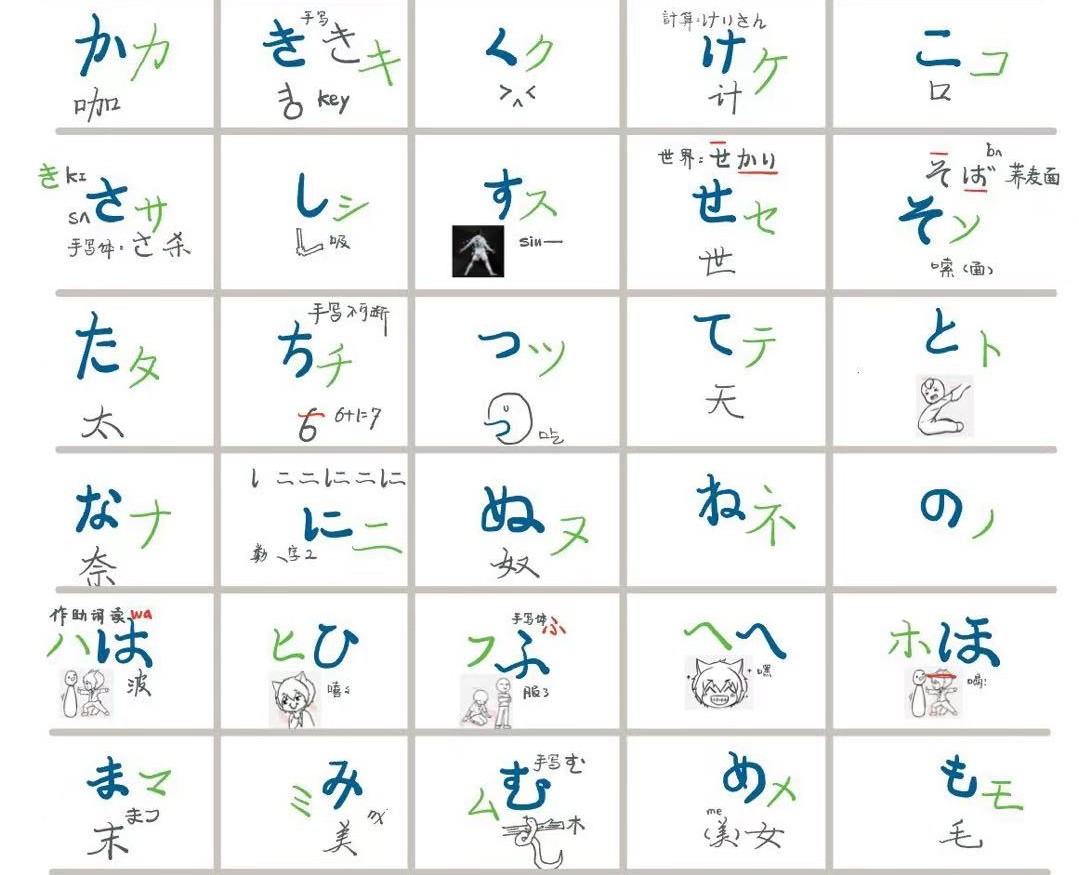 かカ
咖
手写
きき キ
key
くク
>^<
計算:けいさん
けケ
计
こコ
口
き kI
sʌ さサ
手写体:さ 杀
しシ
吸
すス
siu—
世界:せかり
せセ
世
bʌ
そば 荞麦面
そソ
嗦(面)
たタ
太
手写不可断
ちチ
6 6+1=7
つツ
てテ
天
とト
なナ
奈
しニニにニにニ
にニ
ぬヌ
奴
ねネ
のノ
作助词读wa
ハは
波
ヒひ
嘻
手写体ふ
フふ
服了
へヘ
嘿
ホほ
まマ
まつ
末
ミみ
美
手写む
ムむ
木
めメ
me
(美)女
もモ
毛